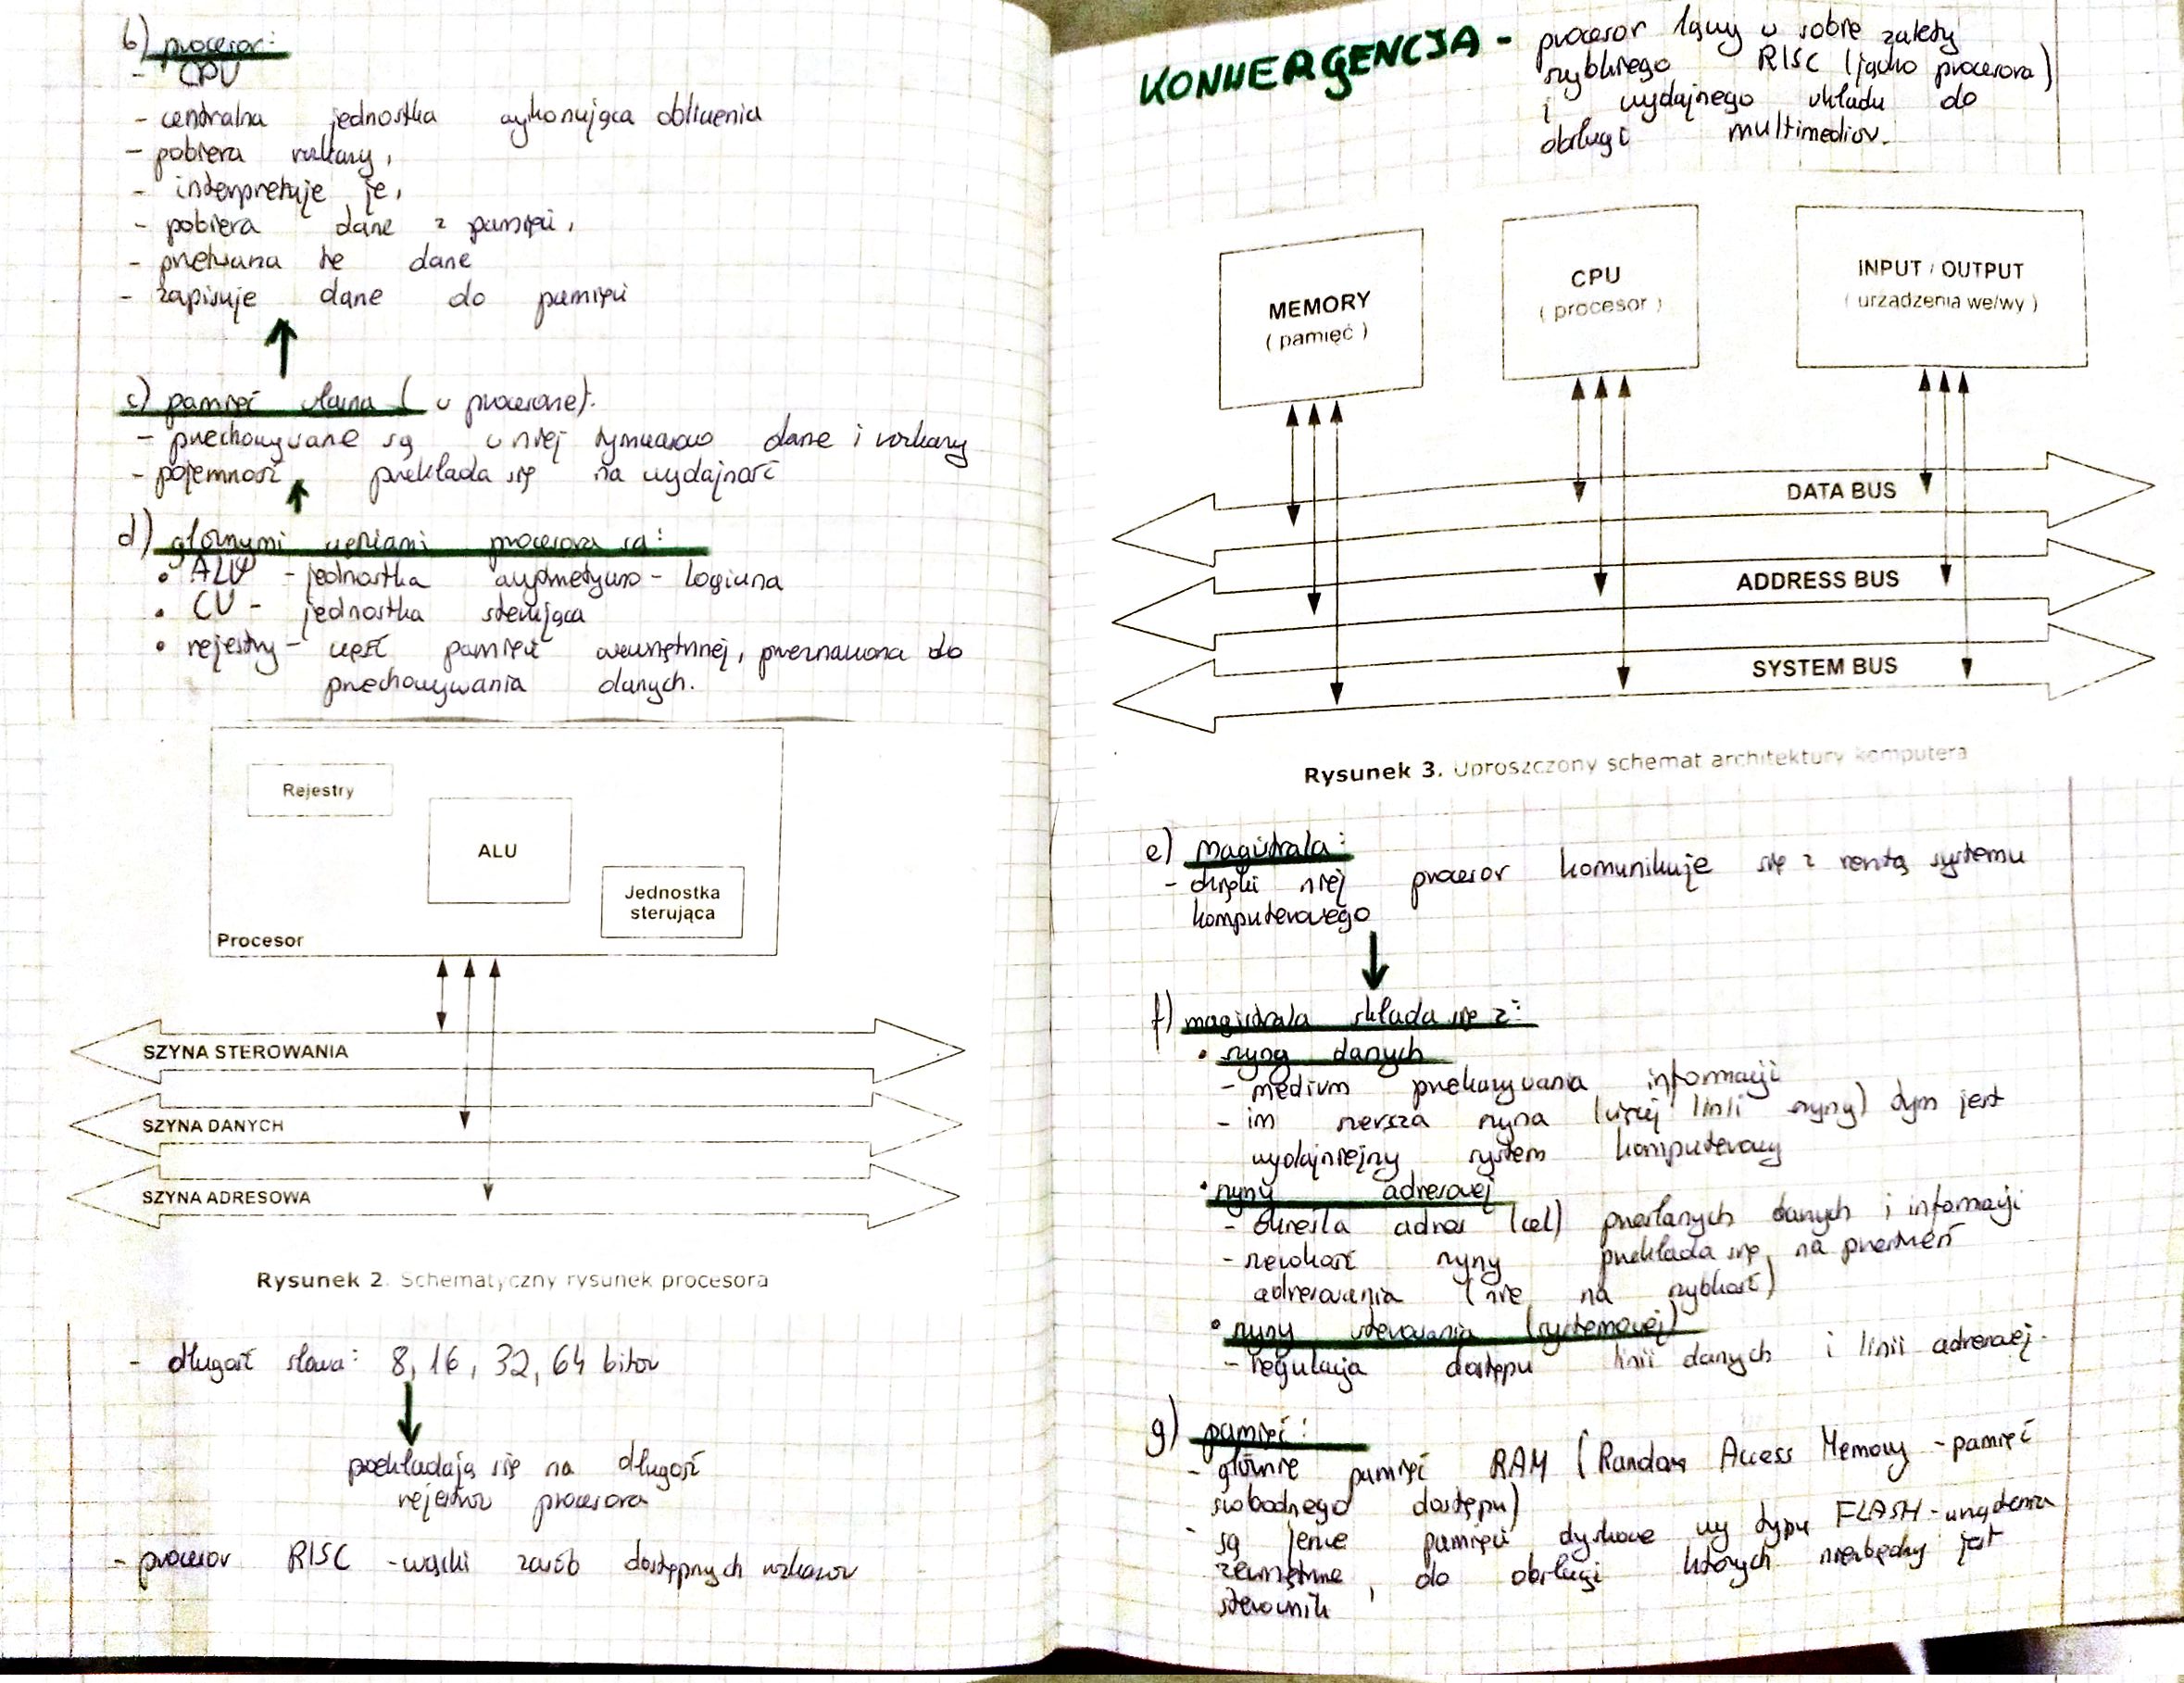 b) procesor:
- CPU
- centralna jednostka wykonująca obliczenia
- pobiera rozkazy,
- interpretuje je,
- pobiera dane z pamięci,
- przetwarza te dane
- zapisuje dane do pamięci
c) pamięć własna (w procesorze).
- przechowywane są w niej tymczasowo dane i rozkazy
- pojemność przekłada się na wydajność
d) głównymi częściami procesora są:
• ALU - jednostka arytmetyczno - logiczna
• CU - jednostka sterująca
• rejestry - część pamięci wewnętrznej, przeznaczona do
przechowywania danych.
Rejestry
ALU
Jednostka
sterująca
Procesor
SZYNA STEROWANIA
SZYNA DANYCH
SZYNA ADRESOWA
Rysunek 2. Schematyczny rysunek procesora
- długość słowa: 8, 16, 32, 64 bitów
przekładają się na długość
rejestrów procesora
- procesor RISC - wąski zasób dostępnych rozkazów
KONWERGENCJA - procesor łączy w sobie zalety
szybkiego RISC (jądro procesora)
i wydajnego układu do
obsługi multimediów.
MEMORY
( pamięć )
CPU
( procesor )
INPUT / OUTPUT
( urządzenia we/wy )
DATA BUS
ADDRESS BUS
SYSTEM BUS
Rysunek 3. Uproszczony schemat architektury komputera
e) magistrala:
- dzięki niej procesor komunikuje się z resztą systemu
komputerowego
f) magistrala składa się z:
• szyna danych
- medium przekazywania informacji
- im szersza szyna (więcej linii szyny) tym jest
wydajniejszy system komputerowy
• szyny adresowej
- określa adres (cel) przesłanych danych i informacji
- szerokość szyny przekłada się na przestrzeń
adresowania (nie na szybkość)
• szyny sterowania (systemowej)
- regulacja dostępu linii danych i linii adresowej.
g) pamięć:
- głównie pamięć RAM (Random Access Memory - pamięć
swobodnego dostępu)
- są jeszcze pamięci dyskowe czy typu FLASH - urządzenia
zewnętrzne, do obsługi których niezbędny jest
sterownik